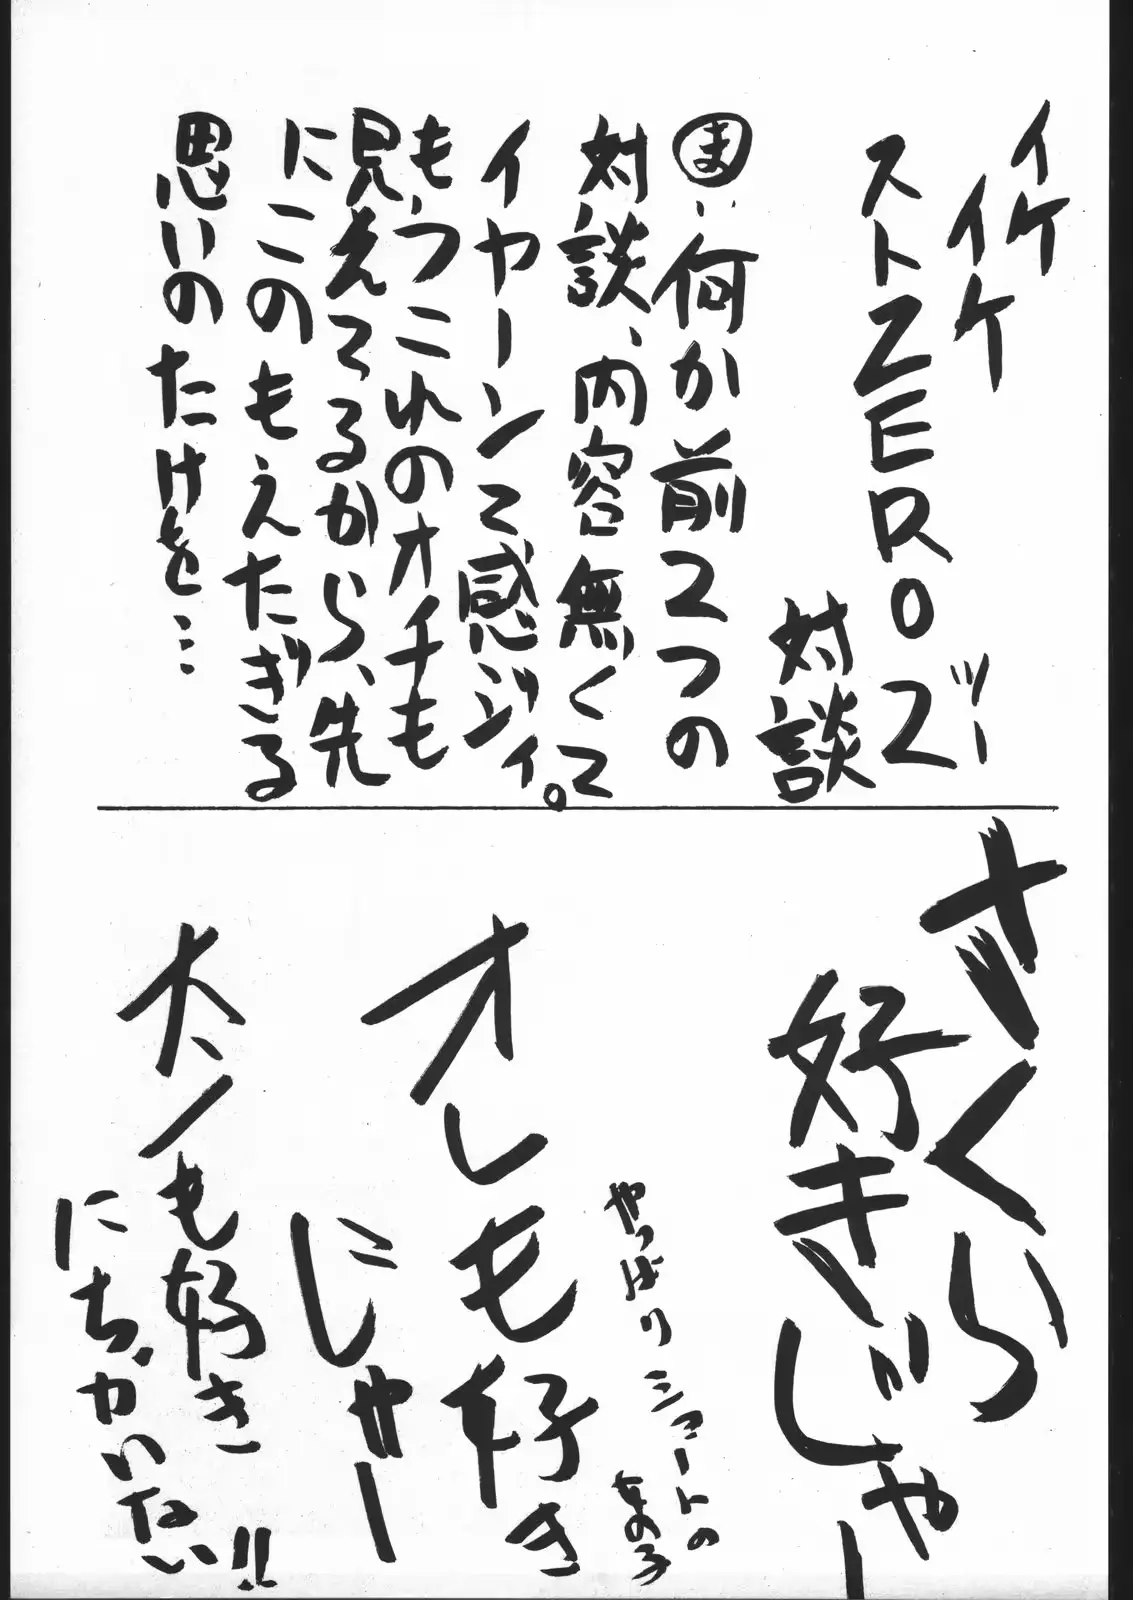 イケ
イケ
ストZERO2
ツー
対談
ま:何か前2つの
対談、内容無くて
イヤーンて感ジィ。
もうこれのオチも
見えてるから、先
にこのもえたぎる
思いのたけを…
さくら
好きじゃー
やっぱりショートの
女の子
オレも好き
にゃー
大ノも好き
にちがいない!!